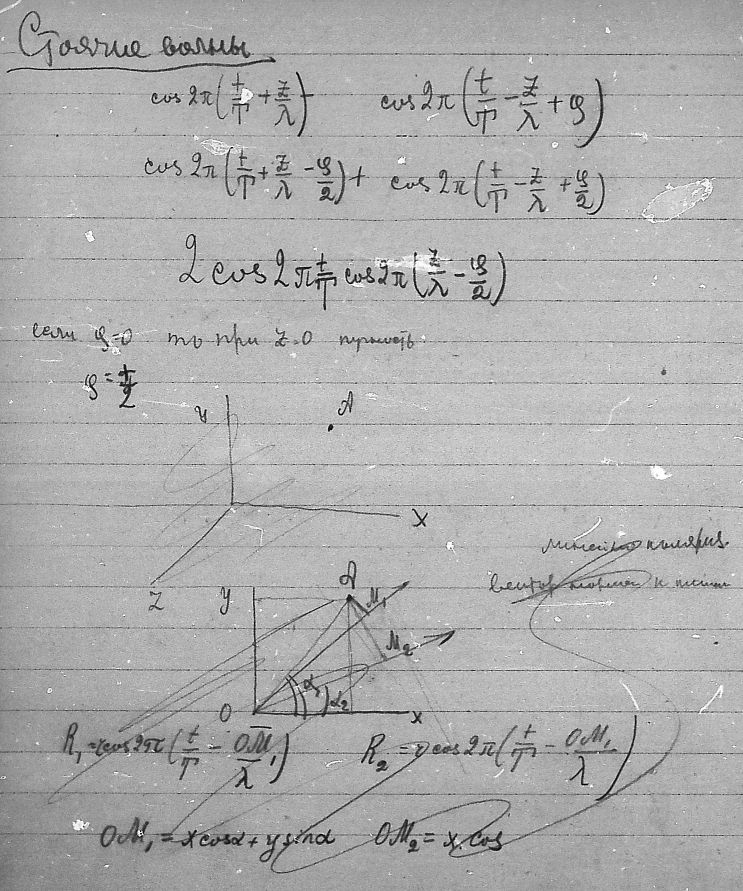 Стоячие волны
cos 2π(t/T + z/λ) cos 2π(t/T − z/λ + φ)
cos 2π(t/T + z/λ − φ/2) + cos 2π(t/T − z/λ + φ/2)
2 cos 2π t/T cos 2π(z/λ − φ/2)
если φ=0 то при z=0 пучность
φ = 
y A
x
линейно поляриз.
z y A M₁
вектор к
M₂
α₁ α₂
O x
R₁ = cos 2π(t/T − OM₁/λ) R₂ = cos 2π(t/T − OM₁/λ)
OM₁ = x cos α + y sin α OM₂ = x cos